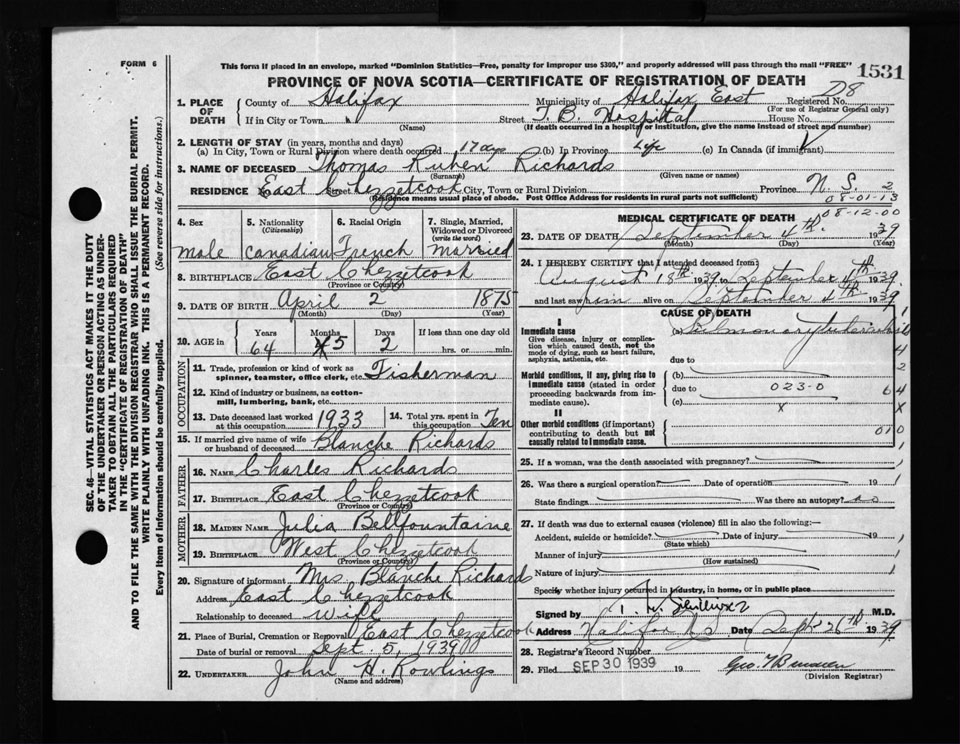 FORM 6
This form if placed in an envelope, marked "Dominion Statistics—Free, penalty for improper use $300," and properly addressed will pass through the mail "FREE"
PROVINCE OF NOVA SCOTIA—CERTIFICATE OF REGISTRATION OF DEATH
1531
1. PLACE OF DEATH
County of Halifax Municipality of Halifax East Registered No. D8
(For use of Registrar General only)
If in City or Town " Street T. B. Hospital House No.
(Name) (If death occurred in a hospital or institution, give the name instead of street and number)
2. LENGTH OF STAY (in years, months and days)
(a) In City, Town or Rural Division where death occurred 17 days (b) In Province Life (c) In Canada (if immigrant)
3. NAME OF DECEASED Thomas Ruben Richards
(Surname) (Given name or names)
RESIDENCE East Chezzetcook Street City, Town or Rural Division Province N. S. 2
(Residence means usual place of abode. Post Office Address for residents in rural parts not sufficient) 08-01-13
08-12-00
4. Sex male
5. Nationality (Citizenship) Canadian
6. Racial Origin French
7. Single, Married, Widowed or Divorced (write the word) married
8. BIRTHPLACE East Chezzetcook
(Province or Country)
9. DATE OF BIRTH April 2 1875
(Month) (Day) (Year)
10. AGE in Years 64 Months 5 Days 2 If less than one day old hrs. or min.
OCCUPATION
11. Trade, profession or kind of work as spinner, teamster, office clerk, etc. Fisherman
12. Kind of industry or business, as cotton-mill, lumbering, bank, etc.
13. Date deceased last worked at this occupation 1933
14. Total yrs. spent in this occupation Ten
15. If married give name of wife or husband of deceased Blanche Richards
FATHER
16. NAME Charles Richards
17. BIRTHPLACE East Chezzetcook
(Province or Country)
MOTHER
18. MAIDEN NAME Julia Bellfountaine
19. BIRTHPLACE West Chezzetcook
(Province or Country)
20. Signature of informant Mrs Blanche Richards
Address East Chezzetcook
Relationship to deceased wife
21. Place of Burial, Cremation or Removal East Chezzetcook
Date of burial or removal Sept. 5, 1939
22. UNDERTAKER John H. Rowlings
(Name and address)
MEDICAL CERTIFICATE OF DEATH
23. DATE OF DEATH September 4th. 1939
(Month) (Day) (Year)
24. I HEREBY CERTIFY that I attended deceased from:
August 18th 1939, to September 4th 1939
and last saw him alive on September 4th 1939
CAUSE OF DEATH
I
Immediate cause
Give disease, injury or complication which caused death, not the mode of dying, such as heart failure, asphyxia, asthenia, etc.
(a) Pulmonary tuberculosis
due to
Morbid conditions, if any, giving rise to immediate cause (stated in order proceeding backwards from immediate cause).
(b)
due to 023-0
(c) x
II
Other morbid conditions (if important) contributing to death but not causally related to immediate cause.
1
4
2
64
x
010
25. If a woman, was the death associated with pregnancy?
26. Was there a surgical operation? Date of operation 19
State findings Was there an autopsy? no
27. If death was due to external causes (violence) fill in also the following:—
Accident, suicide or homicide? Date of injury 19
(State which)
Manner of injury
(How sustained)
Nature of injury
Specify whether injury occurred in industry, in home, or in public place
Signed by M.D.
Address Halifax N.S. Date Sept 26th 1939
28. Registrar's Record Number
29. Filed SEP 30 1939 19 Geo.
(Division Registrar)
SEC. 46—VITAL STATISTICS ACT MAKES IT THE DUTY
OF THE UNDERTAKER OR PERSON ACTING AS UNDER-
TAKER TO OBTAIN ALL THE PARTICULARS REQUIRED
IN THE "CERTIFICATE OF REGISTRATION OF DEATH"
AND TO FILE THE SAME WITH THE DIVISION REGISTRAR WHO SHALL ISSUE THE BURIAL PERMIT.
WRITE PLAINLY WITH UNFADING INK. THIS IS A PERMANENT RECORD.
Every item of information should be carefully supplied. (See reverse side for instructions.)